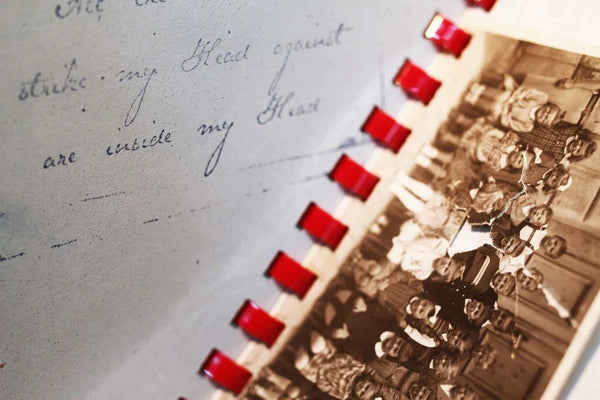 strike my Head against
are inside my Head